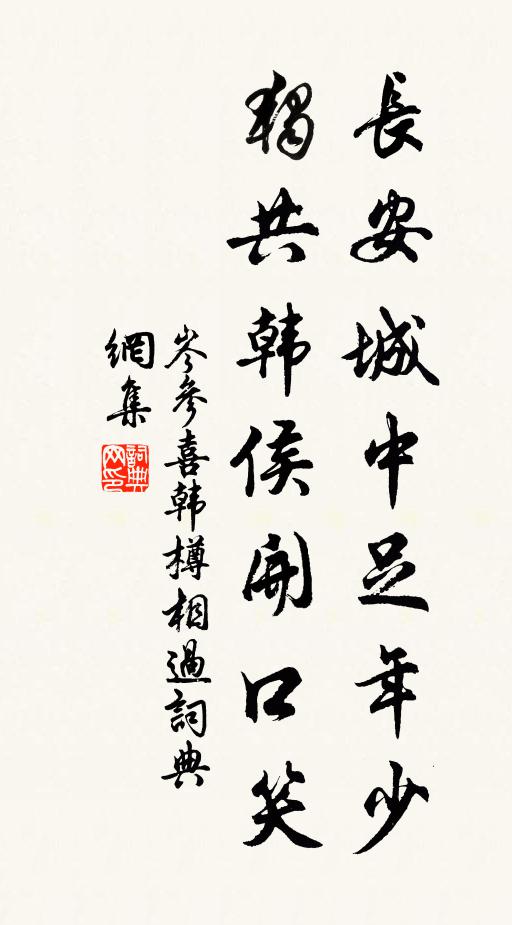 長安城中足年少
獨共韩侯開口笑
岑參喜韩樽相過詞典
網集
詞典网印